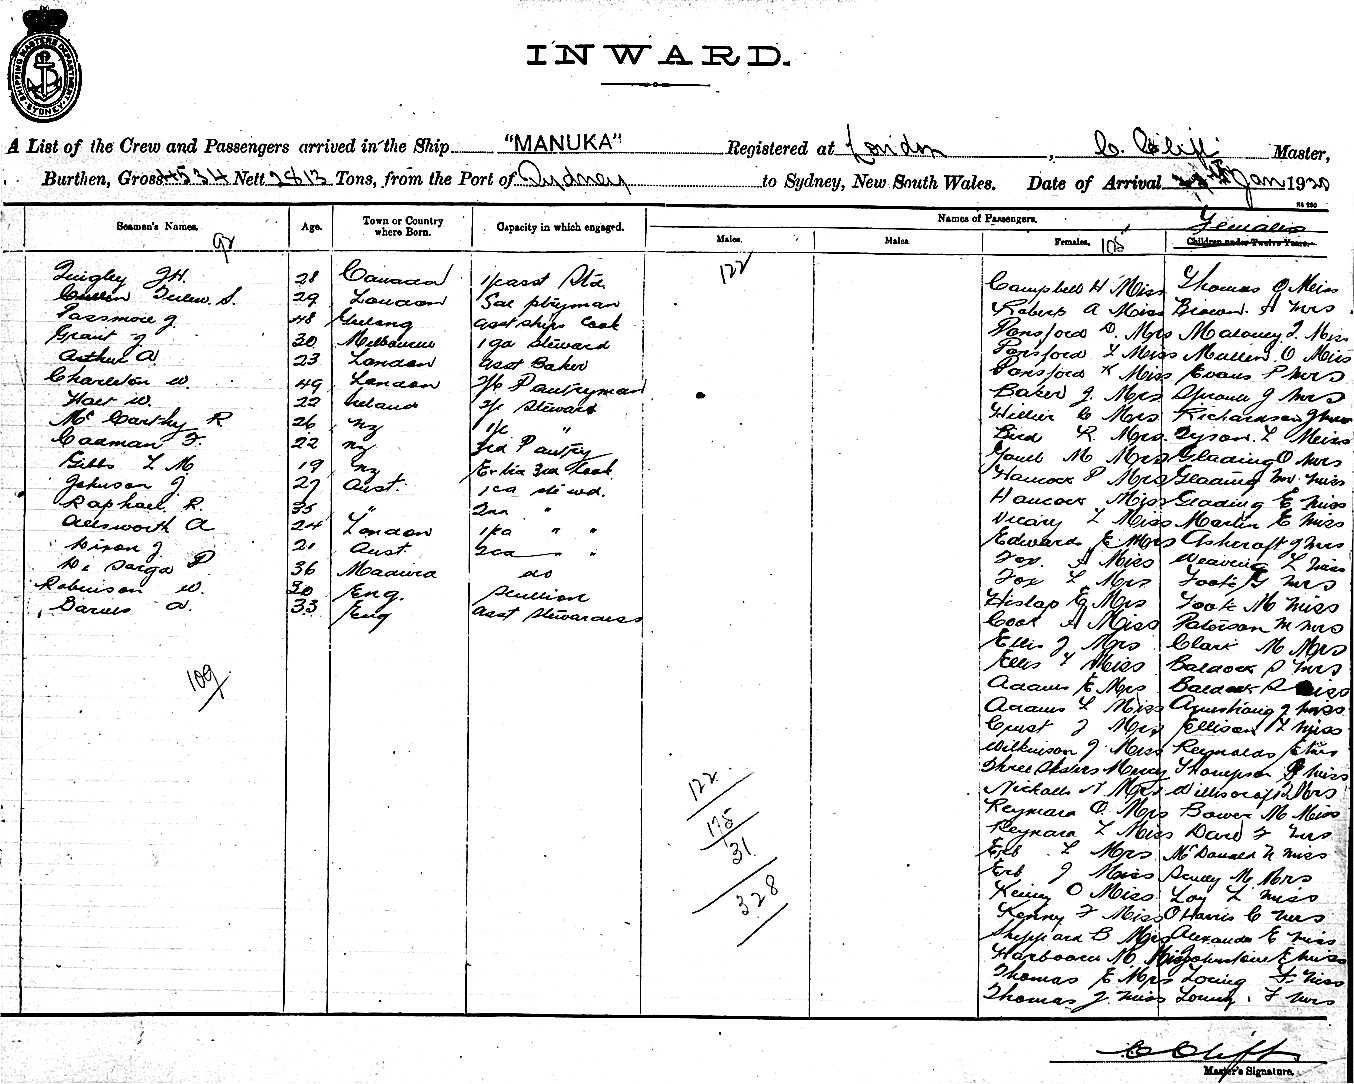 SHIPPING MASTERS DEPARTMENT SYDNEY
INWARD.
A List of the Crew and Passengers arrived in the Ship "MANUKA" Registered at London, C. Cliff Master,
Burthen, Gross 4534 Nett 2813 Tons, from the Port of Sydney to Sydney, New South Wales. Date of Arrival Jan 1920
Seamen's Names. Age. Town or Country where Born. Capacity in which engaged. Names of Passengers.
Males. Males. Females. Females
Children under Twelve Years.
92 122 105
Quigley J.H. 28 Canada
29 London
Passmore J 48 Geelong Asst Ships Cook
Grant J 20 Melbourne Steward
Arthur A 23 London Asst Baker
Charlston W. 49 London Pantryman
W. 22 Ireland Steward
McCarthy R 26 NZ "
Cadman F. 22 NZ 3rd Pantry
Gibbs L M 19 NZ Extra 3rd Cook
Johnson J 27 Aust. Stewd.
Raphael R. 35 " "
Ainsworth A 24 London " "
Dixon J. 21 Aust " "
De Sarga P 36 Madeira do
Robinson W. 30 Eng. Scullion
33 Eng Asst Stewardess
109
122
175
31
328
Campbell H Miss Thomas O Miss
Roberts A Miss Brown A Mrs
Ponsford D. Mrs Maloney J. Miss
Ponsford L Miss Mullens O Miss
Ponsford K Miss Evans P Mrs
Baker J. Mrs J Mrs
Hellier C Mrs Richardson J Mrs
Bird R. Mrs. Tyson L Miss
M Mrs Glading O Mrs
Hancock P Mrs Glading M Miss
Hancock Miss Glading E Miss
Vicary L Miss Martin E Miss
Edwards E Mrs Ashcroft J Mrs
Fox A Miss Weaving L Miss
Fox L Mrs Took G Mrs
Hislop E Mrs Took M Miss
Cook A Miss Paterson M Mrs
Ellis J Mrs Clark M Mrs
Ellis Y Miss Baldock S Mrs
Adams E Mrs Baldock S Miss
Adams L Miss Armstrong J Miss
Crust J Mrs Ellison L Miss
Wilkinson J Miss Reynolds E Mrs
Three Sisters Mercy Thompson Miss
Nicholls N Mrs Mrs
Reynara O. Mrs Bower M Miss
Reynara L Miss David F Mrs
Erb L Mrs McDonald N Miss
Erb J Miss Scully M Mrs
Kenny O Miss Loy L Miss
Kenny F Miss O'Harris C Mrs
Sheppard B Mrs Alexander E Miss
M Miss Johnstone E Miss
Thomas E Mrs Loring F Miss
Thomas J Miss F Mrs
C Cliff
Master's Signature.